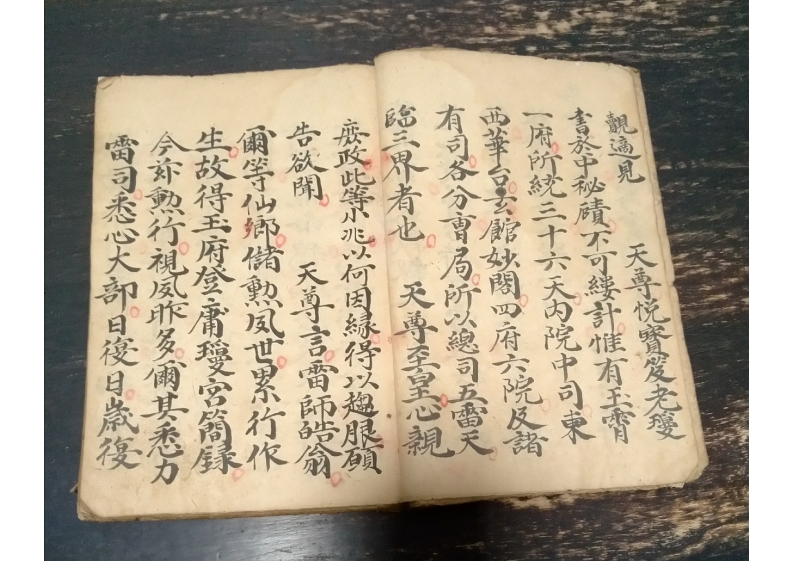 覿適見　天尊悅寳笈老瓊
書於中秘賾不可縷計惟有玉霄
一府所統三十六天內院中司東
西華台玄館妙閣四府六院及諸
有司各分曹局所以總司五雷天
臨三界者也　天尊至皇心親
庶政此等小兆以何因緣得以趨服願
告欲聞　天尊言雷師皓翁
爾等仙鄉儲勲夙世累行作
生故得玉府登庸瓊宮簡録
今茲勲行視夙昨多爾其悉力
雷司悉心大部日復日歲復